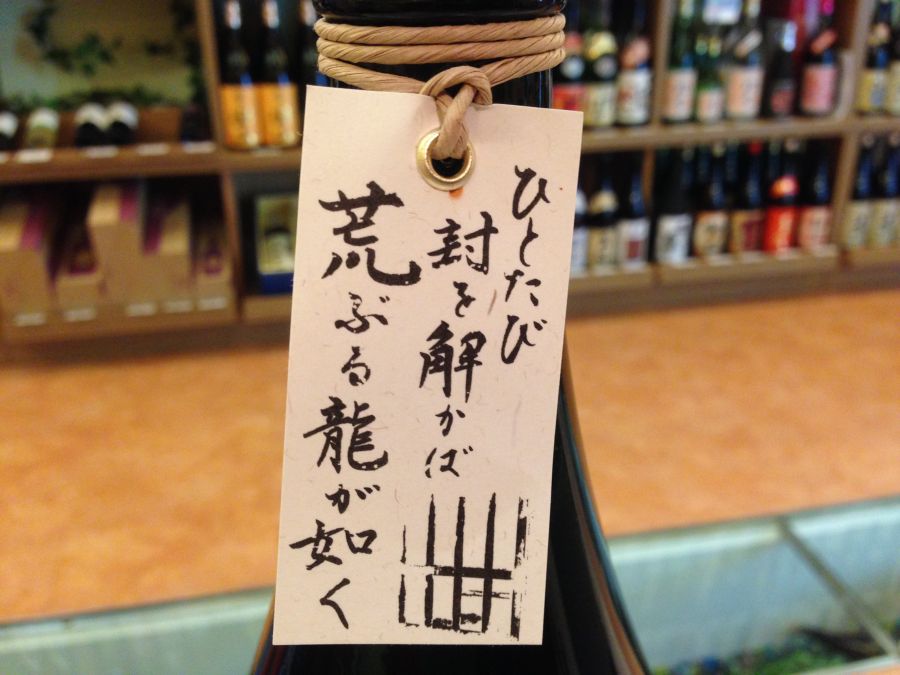 ひとたび
封を解かば
荒ぶる龍が如く